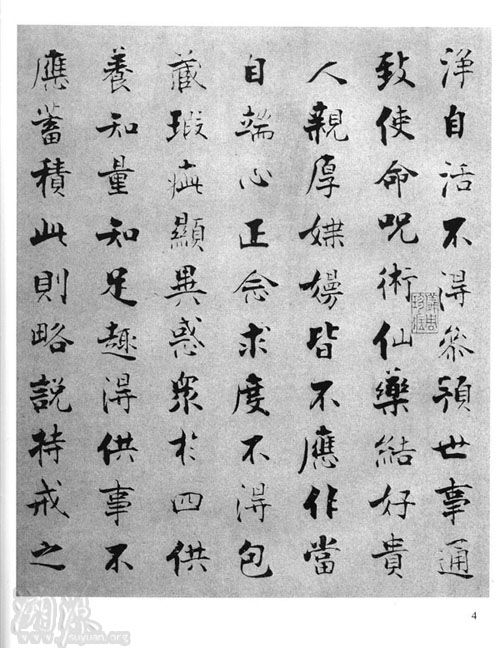 淨自活不得參預世事通
致使命呪術仙藥結好貴
人親厚媟嫚皆不應作當
自端心正念求度不得包
藏瑕疵顯異惑衆於四供
養知量知足趣得供事不
應蓄積此則略說持戒之
4